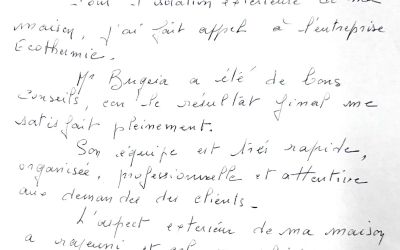 Pour l'isolation extérieure de ma
maison, j'ai fait appel à l'entreprise
Ecothermie.
Mr Bugeia a été de bons
conseils, car le résultat final me
satisfait pleinement.
Son équipe est très rapide,
organisée, professionnelle et attentive
aux demandes des clients.
L'aspect exterieur de ma maison
a rajeuni et